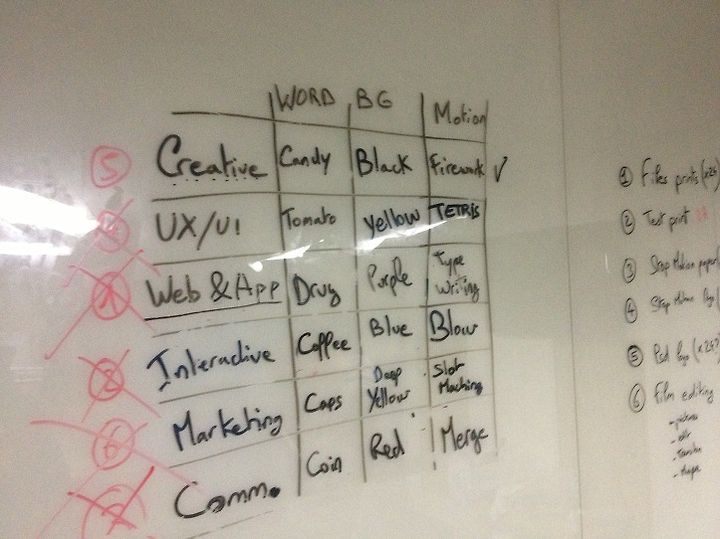 WORD BG Motion
5 Creative Candy Black firework ✓
4 UX/UI Tomato yellow TETRIS
1 Web & App Drug Purple Type Writing
2 Interactive Coffee Blue Blow
6 Marketing Caps Deep Yellow Slot Maching
Comm. Coin Red Merge
1 Files prints (x24
2 Test print
3 Stop Motion paper
4 Stop Motion
5 Psd (x24?
6 Film editing